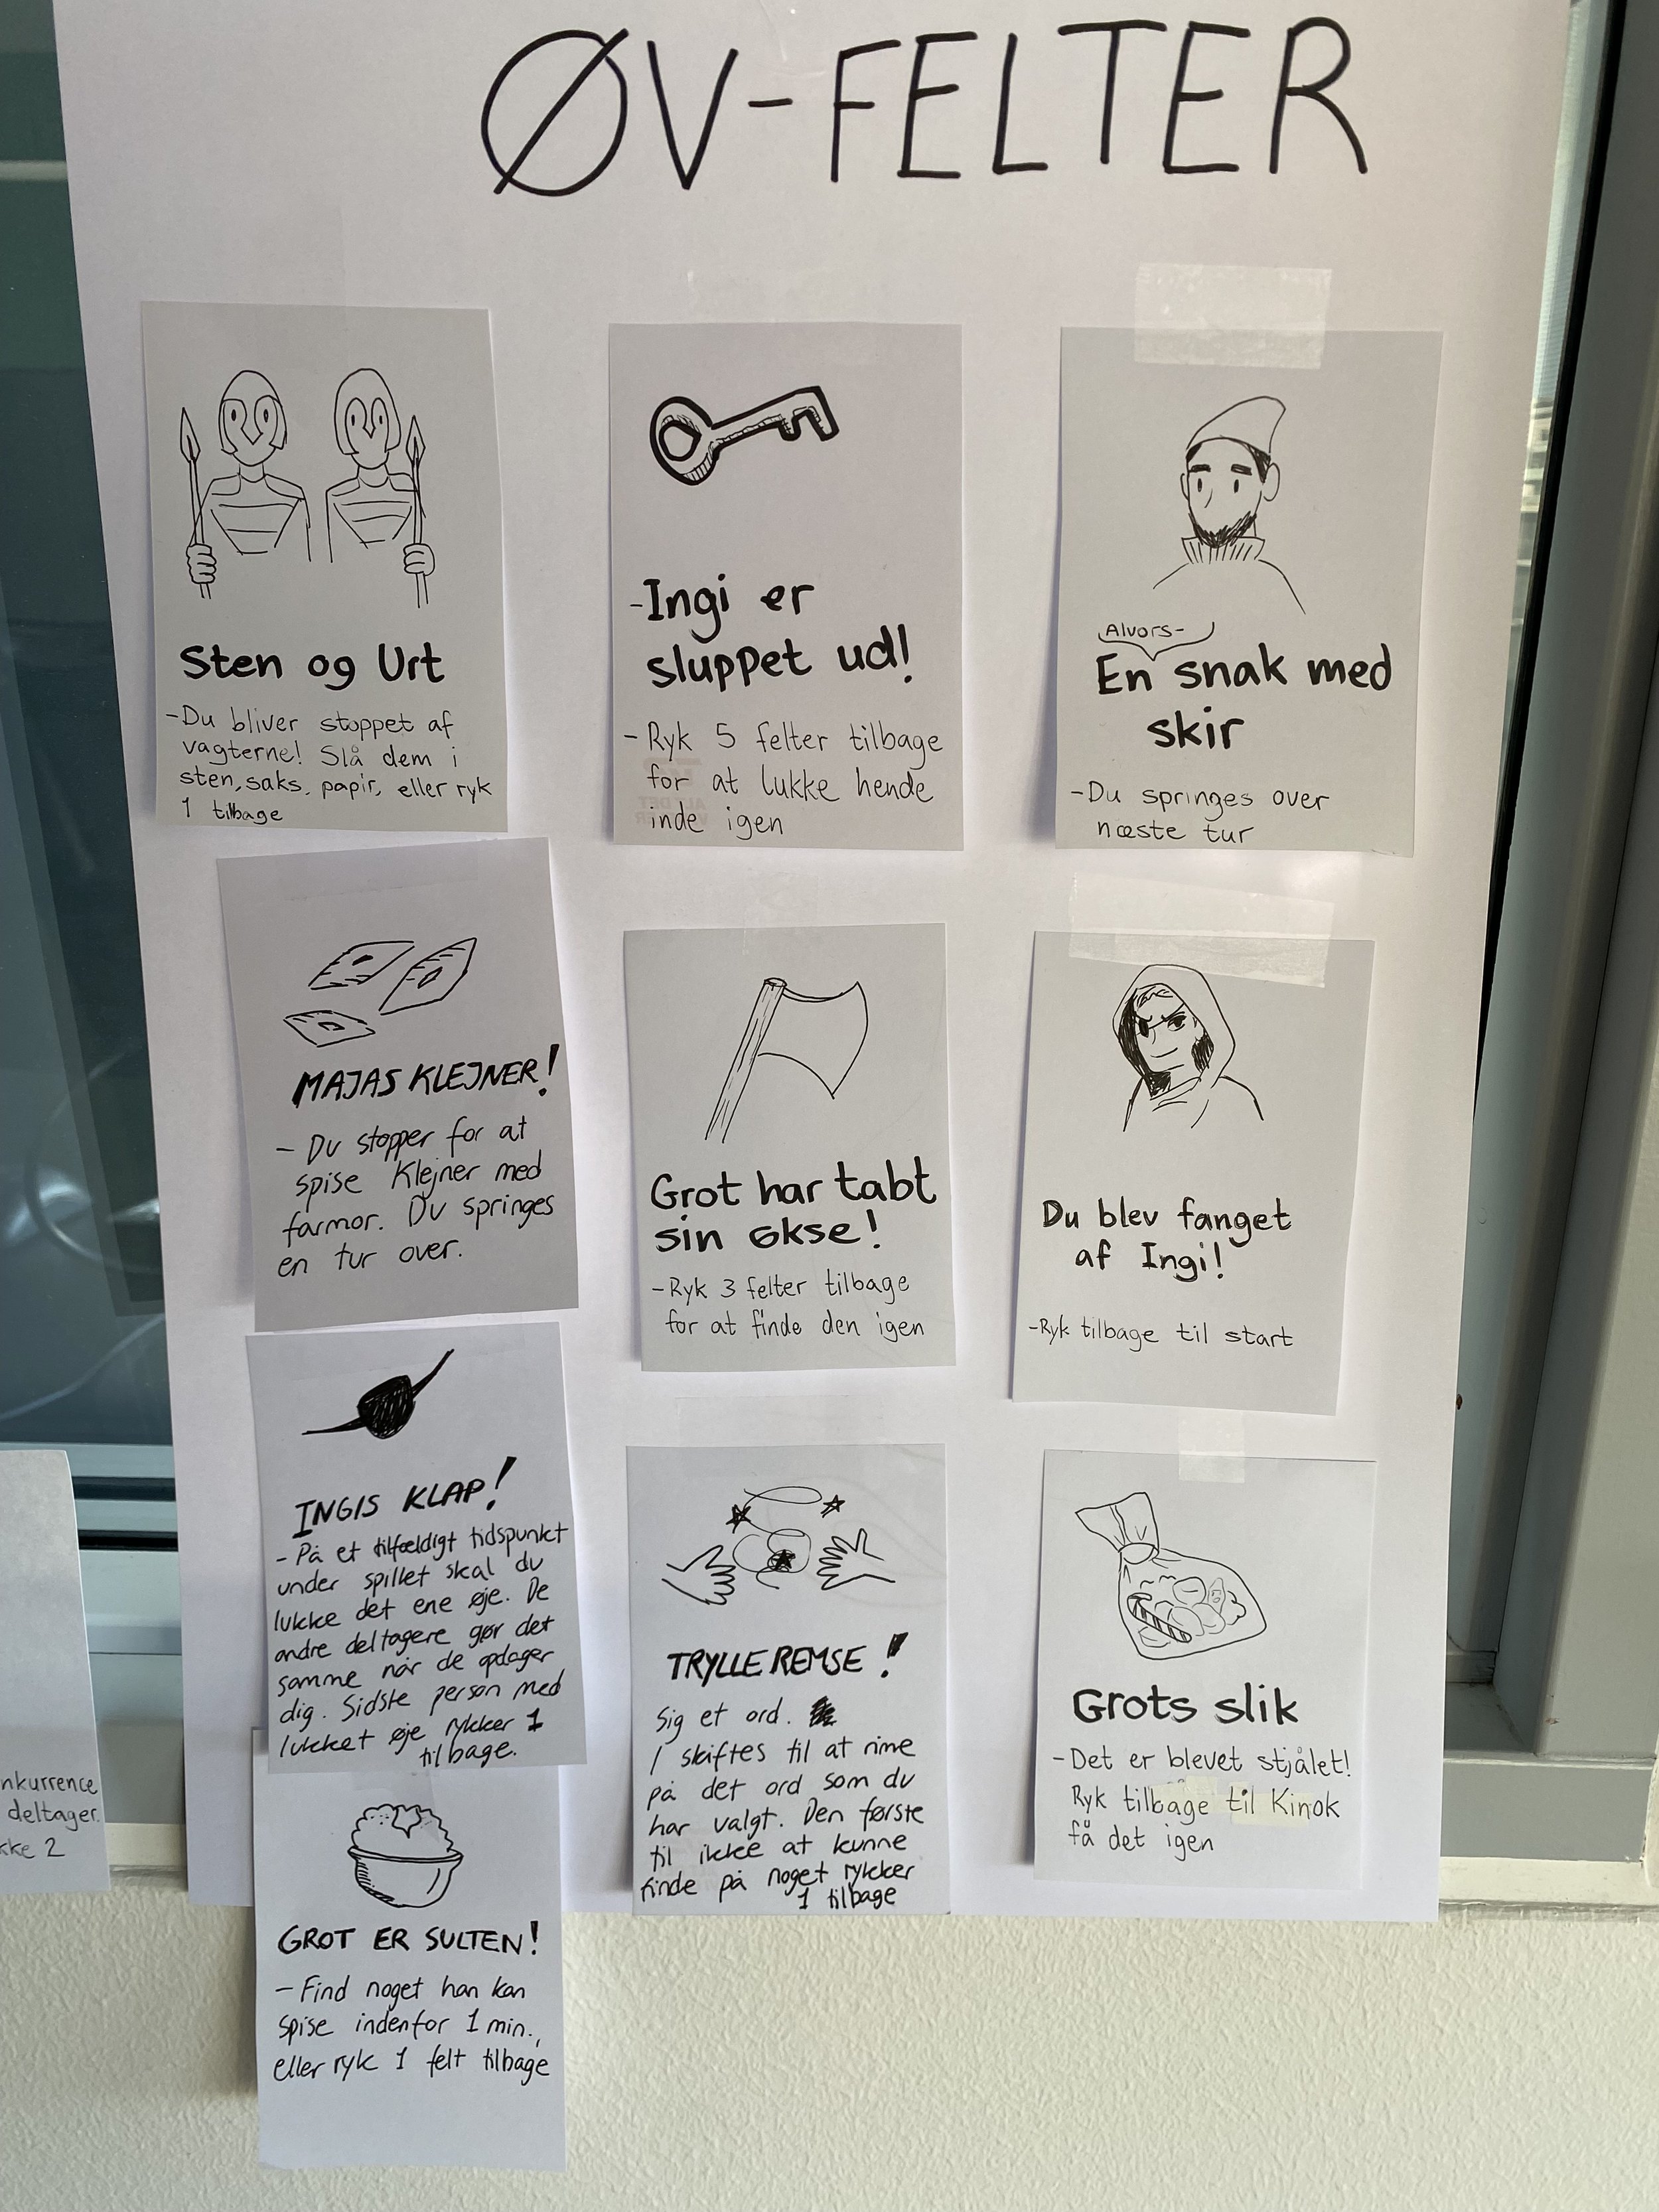 ØV-FELTER
Sten og Urt
-Du bliver stoppet af
vagterne! Slå dem i
sten, saks, papir, eller ryk
1 tilbage
-Ingi er
sluppet ud!
- Ryk 5 felter tilbage
for at lukke hende
inde igen
Alvors-
En snak med
skir
-Du springes over
næste tur
MAJAS KLEJNER!
- Du stopper for at
spise Klejner med
farmor. Du springes
en tur over.
Grot har tabt
sin økse!
-Ryk 3 felter tilbage
for at finde den igen
Du blev fanget
af Ingi!
-Ryk tilbage til start
INGIS KLAP!
- På et tilfældigt tidspunkt
under spillet skal du
lukke det ene øje. De
andre deltagere gør det
samme når de opdager
dig. Sidste person med
lukket øje rykker 1
tilbage.
TRYLLEREMSE!
Sig et ord.
I skiftes til at rime
på det ord som du
har valgt. Den første
til ikke at kunne
finde på noget rykker
1 tilbage
Grots slik
-Det er blevet stjålet!
Ryk tilbage til Kinok
få det igen
GROT ER SULTEN!
- Find noget han kan
spise indenfor 1 min.,
eller ryk 1 felt tilbage
nkurrence
deltager.
kke 2